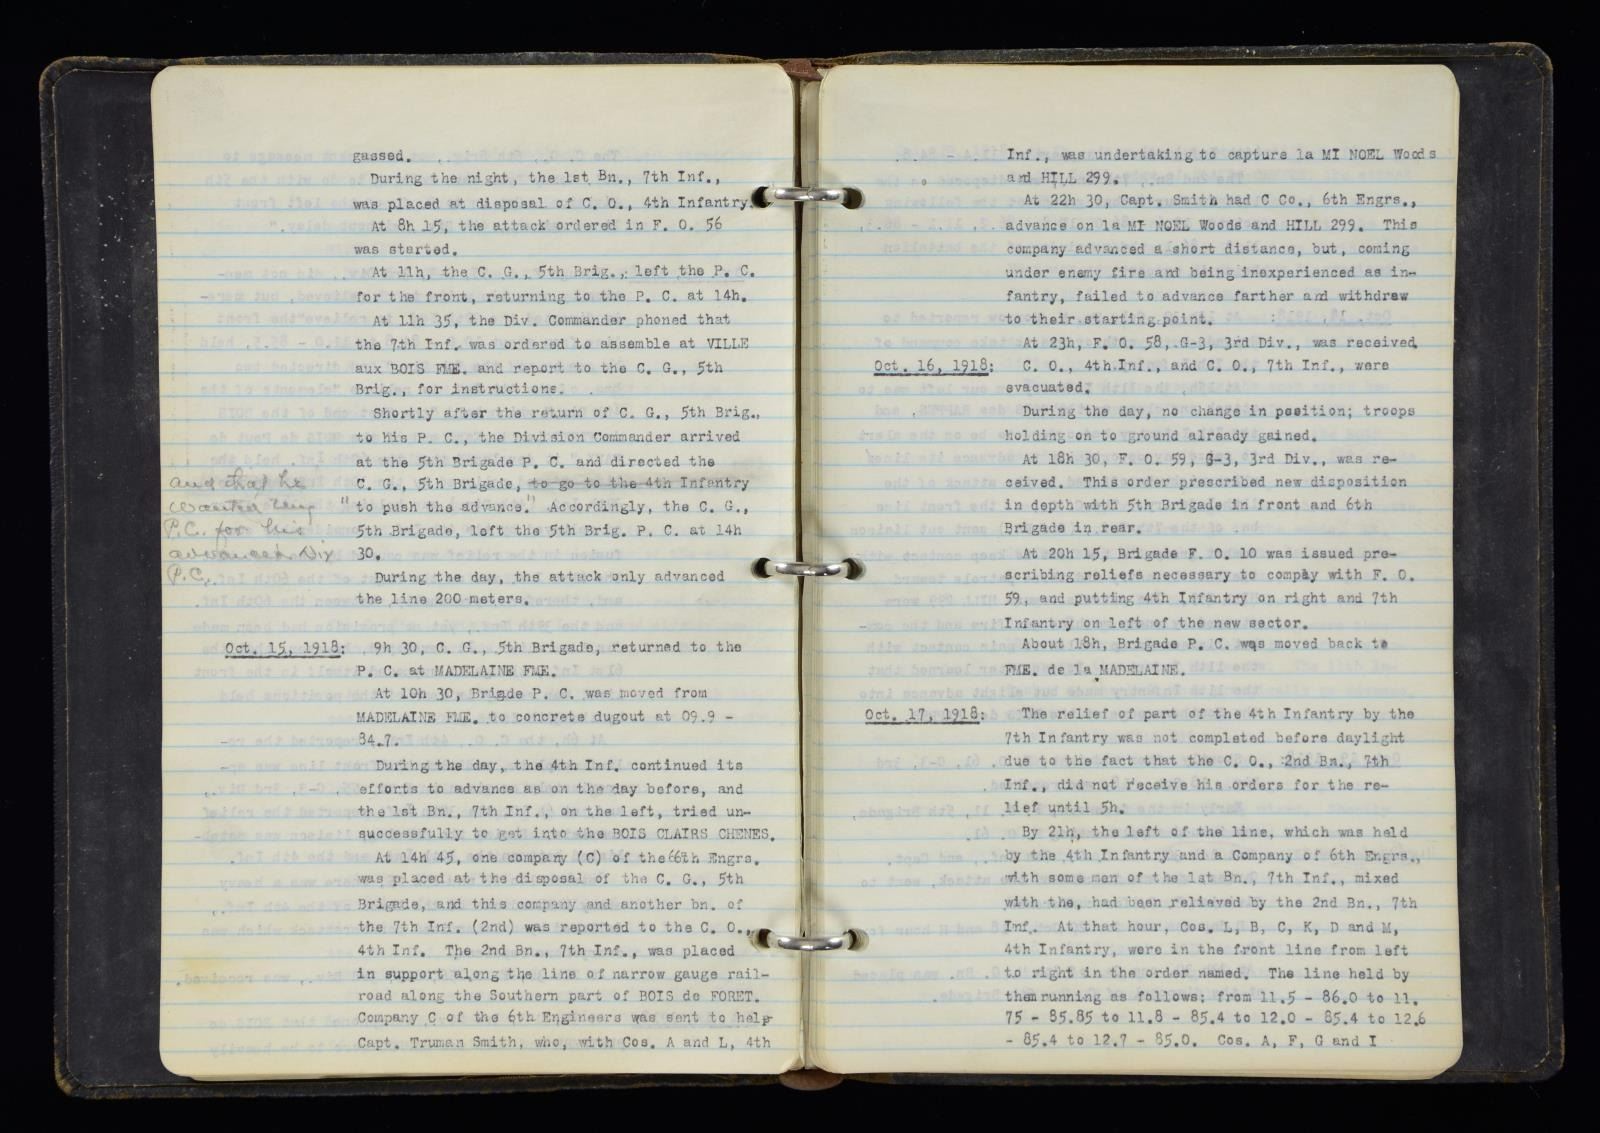 gassed.
During the night, the 1st Bn., 7th Inf.,
was placed at disposal of C. O., 4th Infantry.
At 8h 15, the attack ordered in F. O. 56
was started.
At 11h, the C. G., 5th Brig., left the P. C.
for the front, returning to the P. C. at 14h.
At 11h 35, the Div. Commander phoned that
the 7th Inf. was ordered to assemble at VILLE
aux BOIS FME. and report to the C. G., 5th
Brig., for instructions.
Shortly after the return of C. G., 5th Brig.,
to his P. C., the Division Commander arrived
at the 5th Brigade P. C. and directed the
C. G., 5th Brigade, to go to the 4th Infantry
"to push the advance." Accordingly, the C. G.,
5th Brigade, left the 5th Brig. P. C. at 14h
30.
and that he
wanted my
P.C. for his
advanced Div
P.C.
During the day, the attack only advanced
the line 200 meters.
Oct. 15, 1918: 9h 30, C. G., 5th Brigade, returned to the
P. C. at MADELAINE FME.
At 10h 30, Brigade P. C. was moved from
MADELAINE FME. to concrete dugout at 09.9 -
84.7.
During the day, the 4th Inf. continued its
efforts to advance as on the day before, and
the 1st Bn., 7th Inf., on the left, tried un-
successfully to get into the BOIS CLAIRS CHENES.
At 14h 45, one company (C) of the 6th Engrs.
was placed at the disposal of the C. G., 5th
Brigade, and this company and another bn. of
the 7th Inf. (2nd) was reported to the C. O.,
4th Inf. The 2nd Bn., 7th Inf., was placed
in support along the line of narrow gauge rail-
road along the Southern part of BOIS de FORET.
Company C of the 6th Engineers was sent to help
Capt. Truman Smith, who, with Cos. A and L, 4th
Inf., was undertaking to capture la MI NOEL Woods
and HILL 299.
At 22h 30, Capt. Smith had C Co., 6th Engrs.,
advance on la MI NOEL Woods and HILL 299. This
company advanced a short distance, but, coming
under enemy fire and being inexperienced as in-
fantry, failed to advance farther and withdrew
to their starting point.
At 23h, F. O. 58, G-3, 3rd Div., was received.
Oct. 16, 1918: C. O., 4th Inf., and C. O., 7th Inf., were
evacuated.
During the day, no change in position; troops
holding on to ground already gained.
At 18h 30, F. O. 59, G-3, 3rd Div., was re-
ceived. This order prescribed new disposition
in depth with 5th Brigade in front and 6th
Brigade in rear.
At 20h 15, Brigade F. O. 10 was issued pre-
scribing reliefs necessary to comply with F. O.
59, and putting 4th Infantry on right and 7th
Infantry on left of the new sector.
About 18h, Brigade P. C. was moved back to
FME. de la MADELAINE.
Oct. 17, 1918: The relief of part of the 4th Infantry by the
7th Infantry was not completed before daylight
due to the fact that the C. O., 2nd Bn., 7th
Inf., did not receive his orders for the re-
lief until 5h.
By 21h, the left of the line, which was held
by the 4th Infantry and a Company of 6th Engrs.,
with some men of the 1st Bn., 7th Inf., mixed
with the, had been relieved by the 2nd Bn., 7th
Inf. At that hour, Cos. L, B, C, K, D and M,
4th Infantry, were in the front line from left
to right in the order named. The line held by
them running as follows: from 11.5 - 86.0 to 11.
75 - 85.85 to 11.8 - 85.4 to 12.0 - 85.4 to 12.6
- 85.4 to 12.7 - 85.0. Cos. A, F, G and I